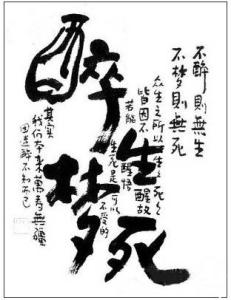 不醉則無生
不梦則無死
醉生梦死
众生之所以生之死之
皆因不醒故
若能醒悟
生死是可以不受的
其实
我们本来萬寿無疆
因这醉不知而已